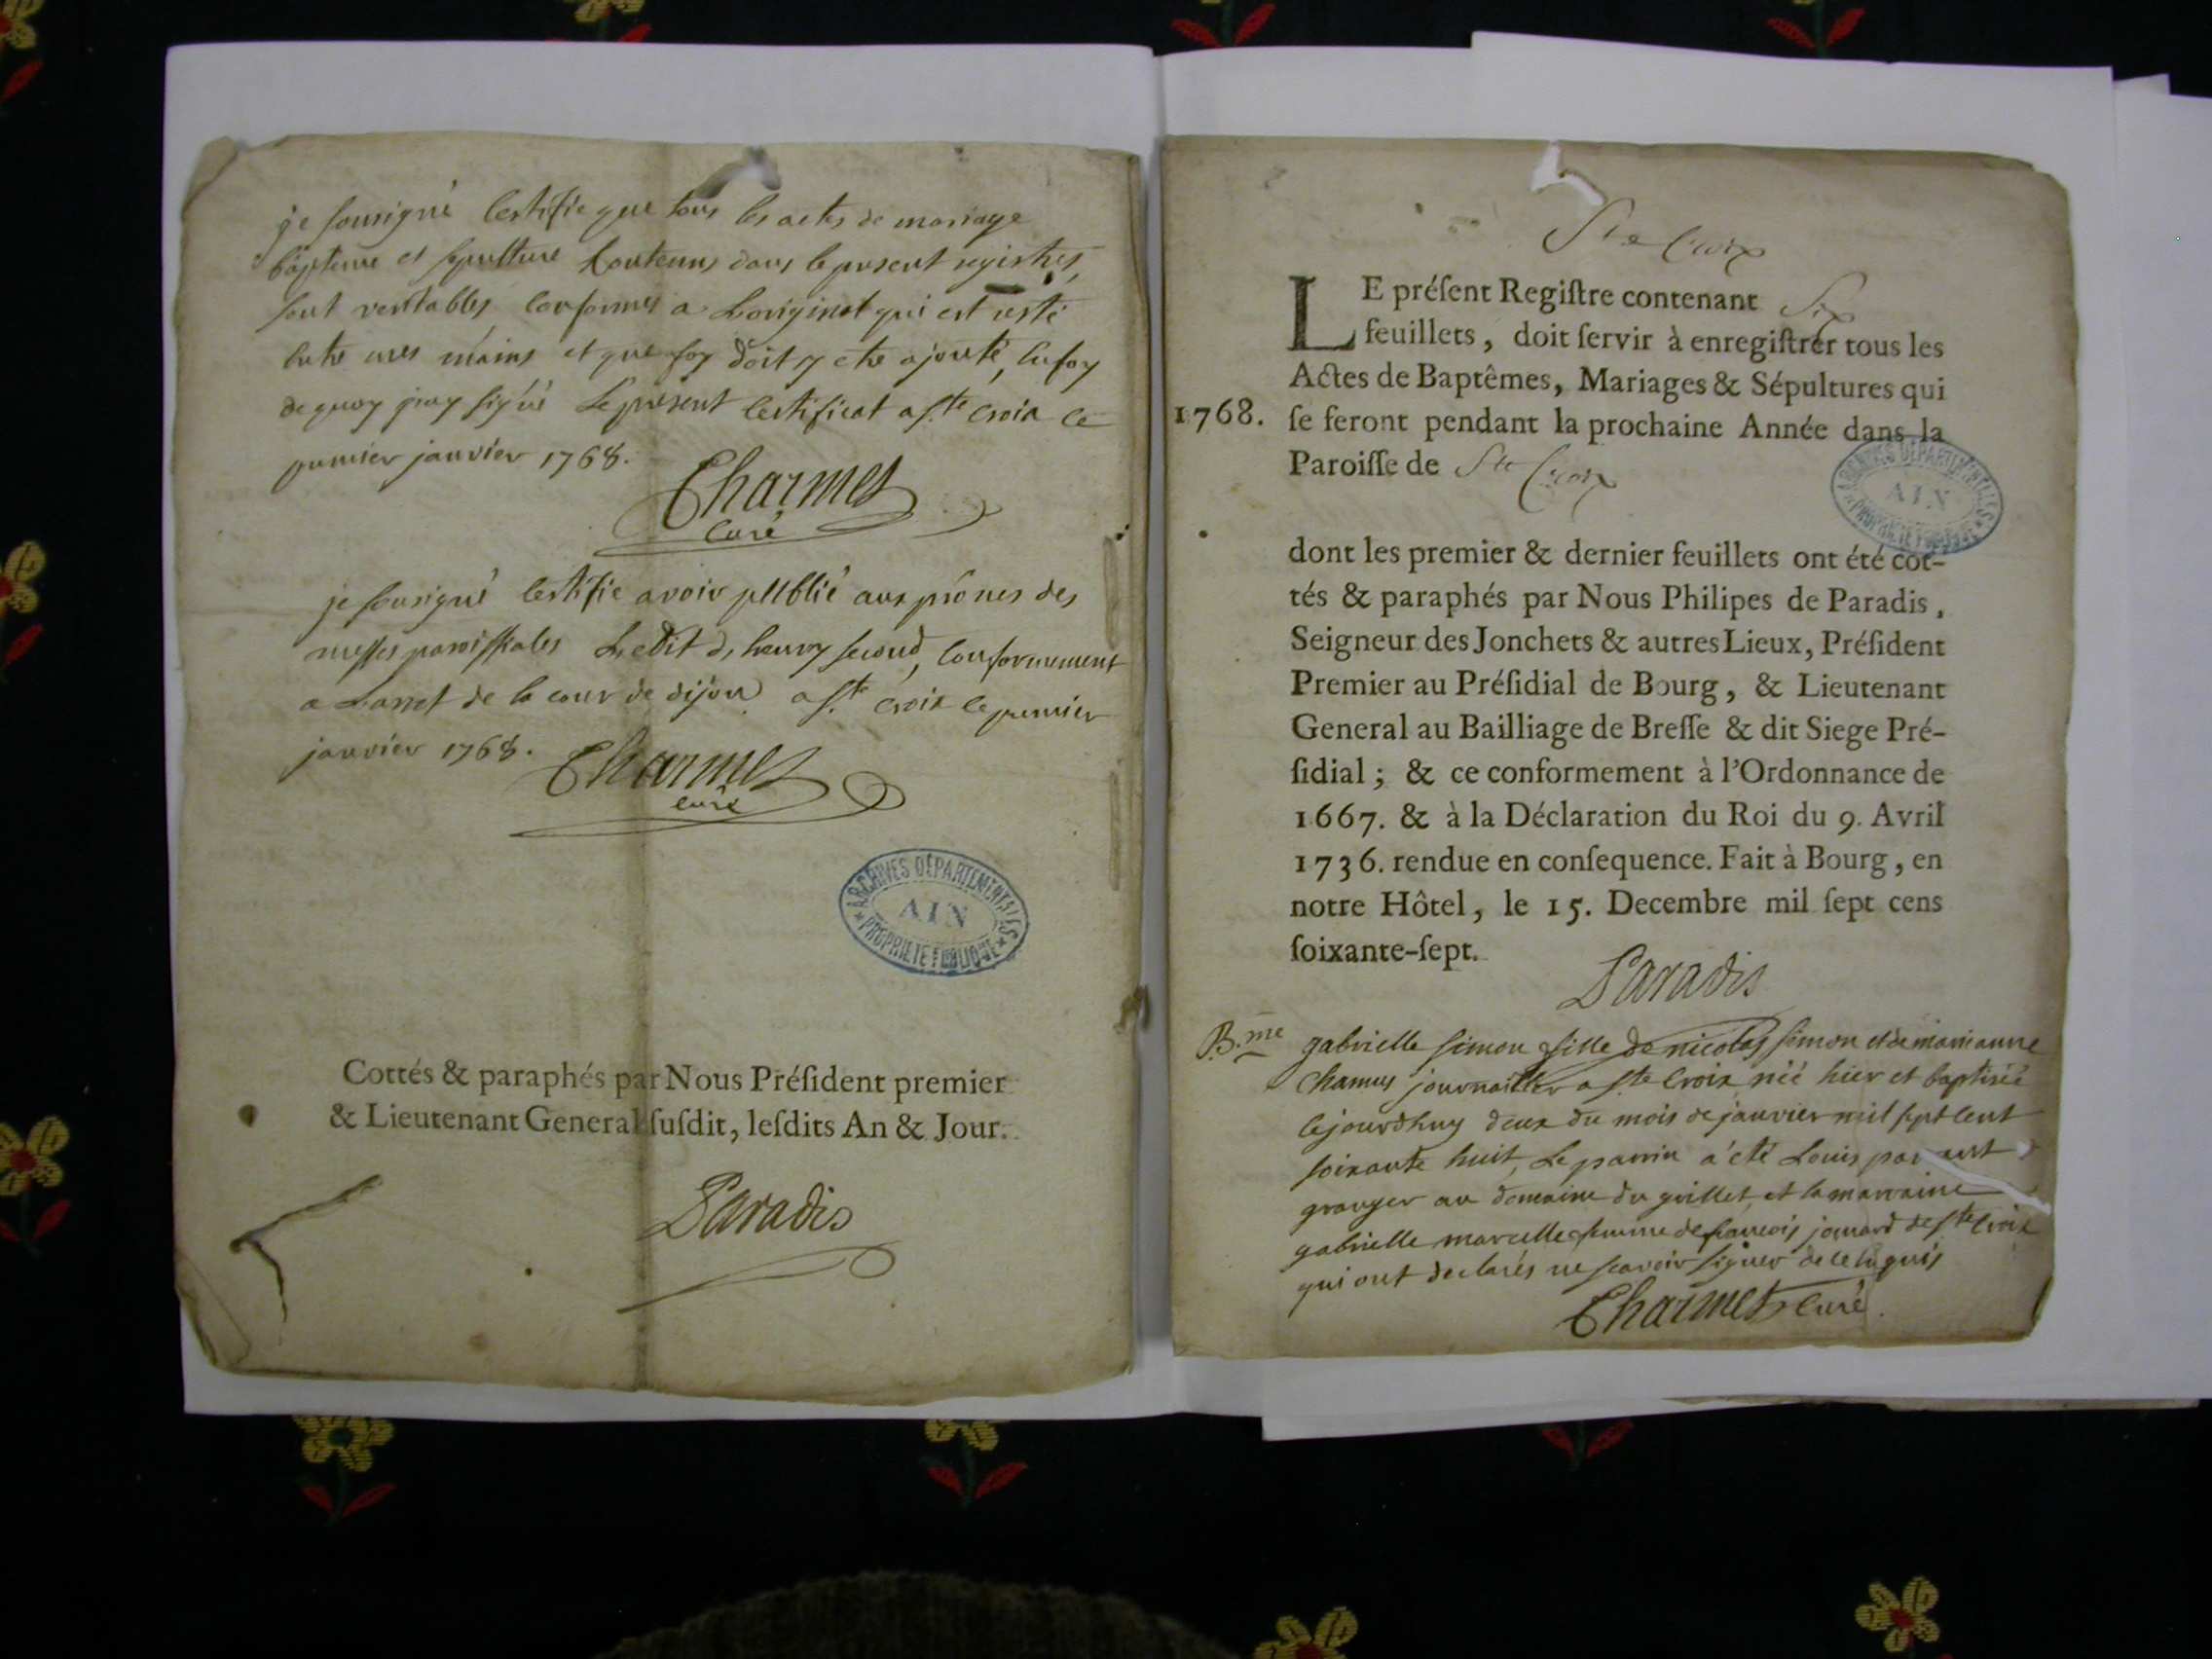 je sousigné certifie que tous les actes de mariage
bapteme et sepulture contenus dans le present registres,
sont veritables conformes a Loriginal qui est resté
entre mes mains et que foy doit y etre ajouté, en foy
de quoy jay signé Le présent certificat a ste croix ce
premier janvier 1768.
Charmet
curé
je sousigné certifie avoir publié aux prônes des
messes paroissiales Ledit d, henry second, conformement
a Larret de la cour de dijon a ste croix le premier
janvier 1768.
Charmet
curé
ARCHIVES DÉPARTEMENTALES
AIN
PROPRIETE PUBLIQUE
Cottés & paraphés par Nous Préſident premier
& Lieutenant General ſuſdit, leſdits An & Jour.
Paradis
Ste Croix
LE préſent Regiſtre contenant Six
feuillets, doit ſervir à enregiſtrer tous les
Actes de Baptêmes, Mariages & Sépultures qui
1768. ſe feront pendant la prochaine Année dans la
Paroiſſe de Ste Croix
ARCHIVES DÉPARTEMENTALES
AIN
PROPRIETE PUBLIQUE
dont les premier & dernier feuillets ont été cot-
tés & paraphés par Nous Philipes de Paradis,
Seigneur des Jonchets & autres Lieux, Préſident
Premier au Préſidial de Bourg, & Lieutenant
General au Bailliage de Breſſe & dit Siege Pré-
ſidial; & ce conformement à l'Ordonnance de
1667. & à la Déclaration du Roi du 9. Avril
1736. rendue en conſequence. Fait à Bourg, en
notre Hôtel, le 15. Decembre mil ſept cens
ſoixante-ſept.
Paradis
B.me gabrielle simon fille de nicolas simon et de marianne
Chamus journaillier a ste Croix née hier et baptisée
cejourdhuy deux du mois de janvier mil sept cent
soixante huit, Le parrin a été Louis
granger au domaine du grillet et la marraine
gabrielle marcelle femme de francois jomard de ste Croix
qui ont declarés ne scavoir signer de ce enquis
Charmet curé.